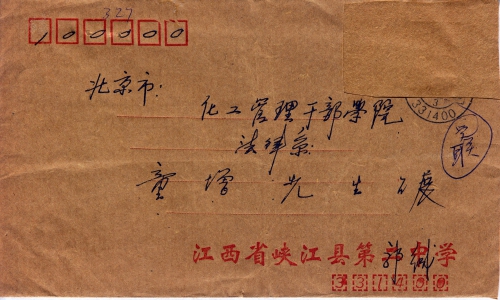 327
100000
北京市:
化工管理干部學院
法律系
童增先生 收
331400
江西省峡江县第二中学 郭
331400